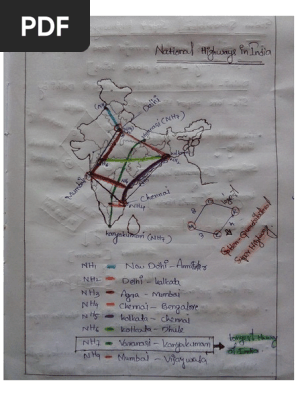 PDF
National Highways in India
Delhi
(NH7)
Mumbai
Chennai
NH4
Kanyakumari (NH7)
Super Highway
NH1 New Delhi - Amritsar
NH2 Delhi - Kolkata
NH3 Agra - Mumbai
NH4 Chennai -
NH5 Kolkata - Chennai
NH6 Kolkata - Dhule
NH7 Varanasi - Kanyakumari
longest
of India
NH9 Mumbai - Vijaywada